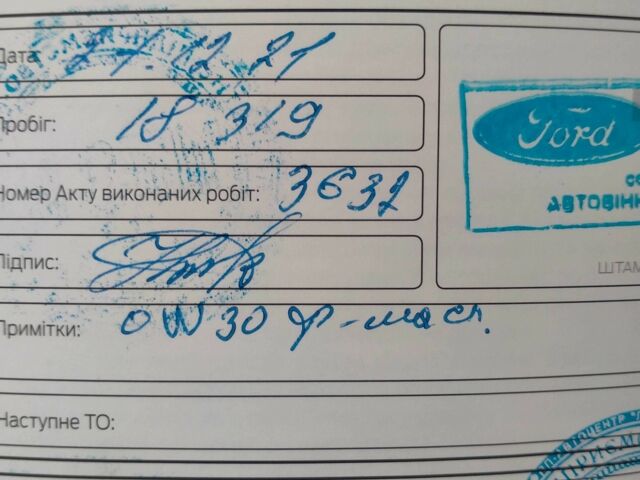 Дата: 27.12.21
Пробіг: 18 319
Номер Акту виконаних робіт: 3632
Підпис:
Примітки: 0W30 ф-масл.
Наступне ТО:
Ford
АВТОВІНН
ШТАМ